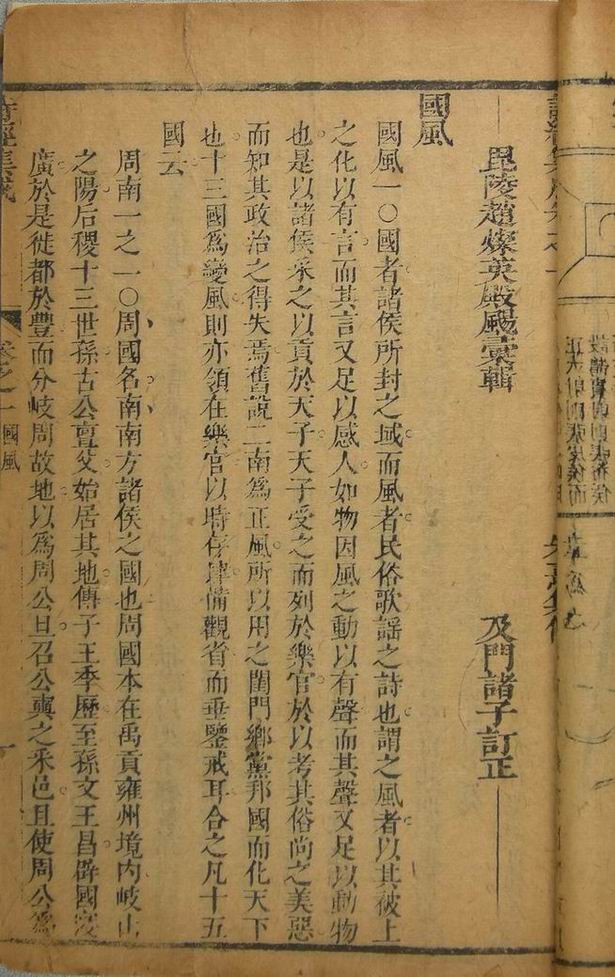 毘陵趙燦英殿颺彙輯
及門諸子訂正
國風
國風一〇國者諸侯所封之域而風者民俗歌謡之詩也謂之風者以其被上
之化以有言而其言又足以感人如物因風之動以有聲而其聲又足以動物
也是以諸侯采之以貢於天子天子受之而列於樂官於以考其俗尚之美惡
而知其政治之得失焉舊說二南為正風所以用之閨門鄉黨邦國而化天下
也十三國爲變風則亦領在樂官以時存肄備觀省而垂鑒戒耳合之凡十五
國云
周南一之一〇周國名南南方諸侯之國也周國本在禹貢雍州境内岐山
之陽后稷十三世孫古公亶父始居其地傳子王季歷至孫文王昌辟國寖
廣於是徙都於豐而分岐周故地以爲周公旦召公奭之采邑且使周公爲
詩經集成
卷之一
國風